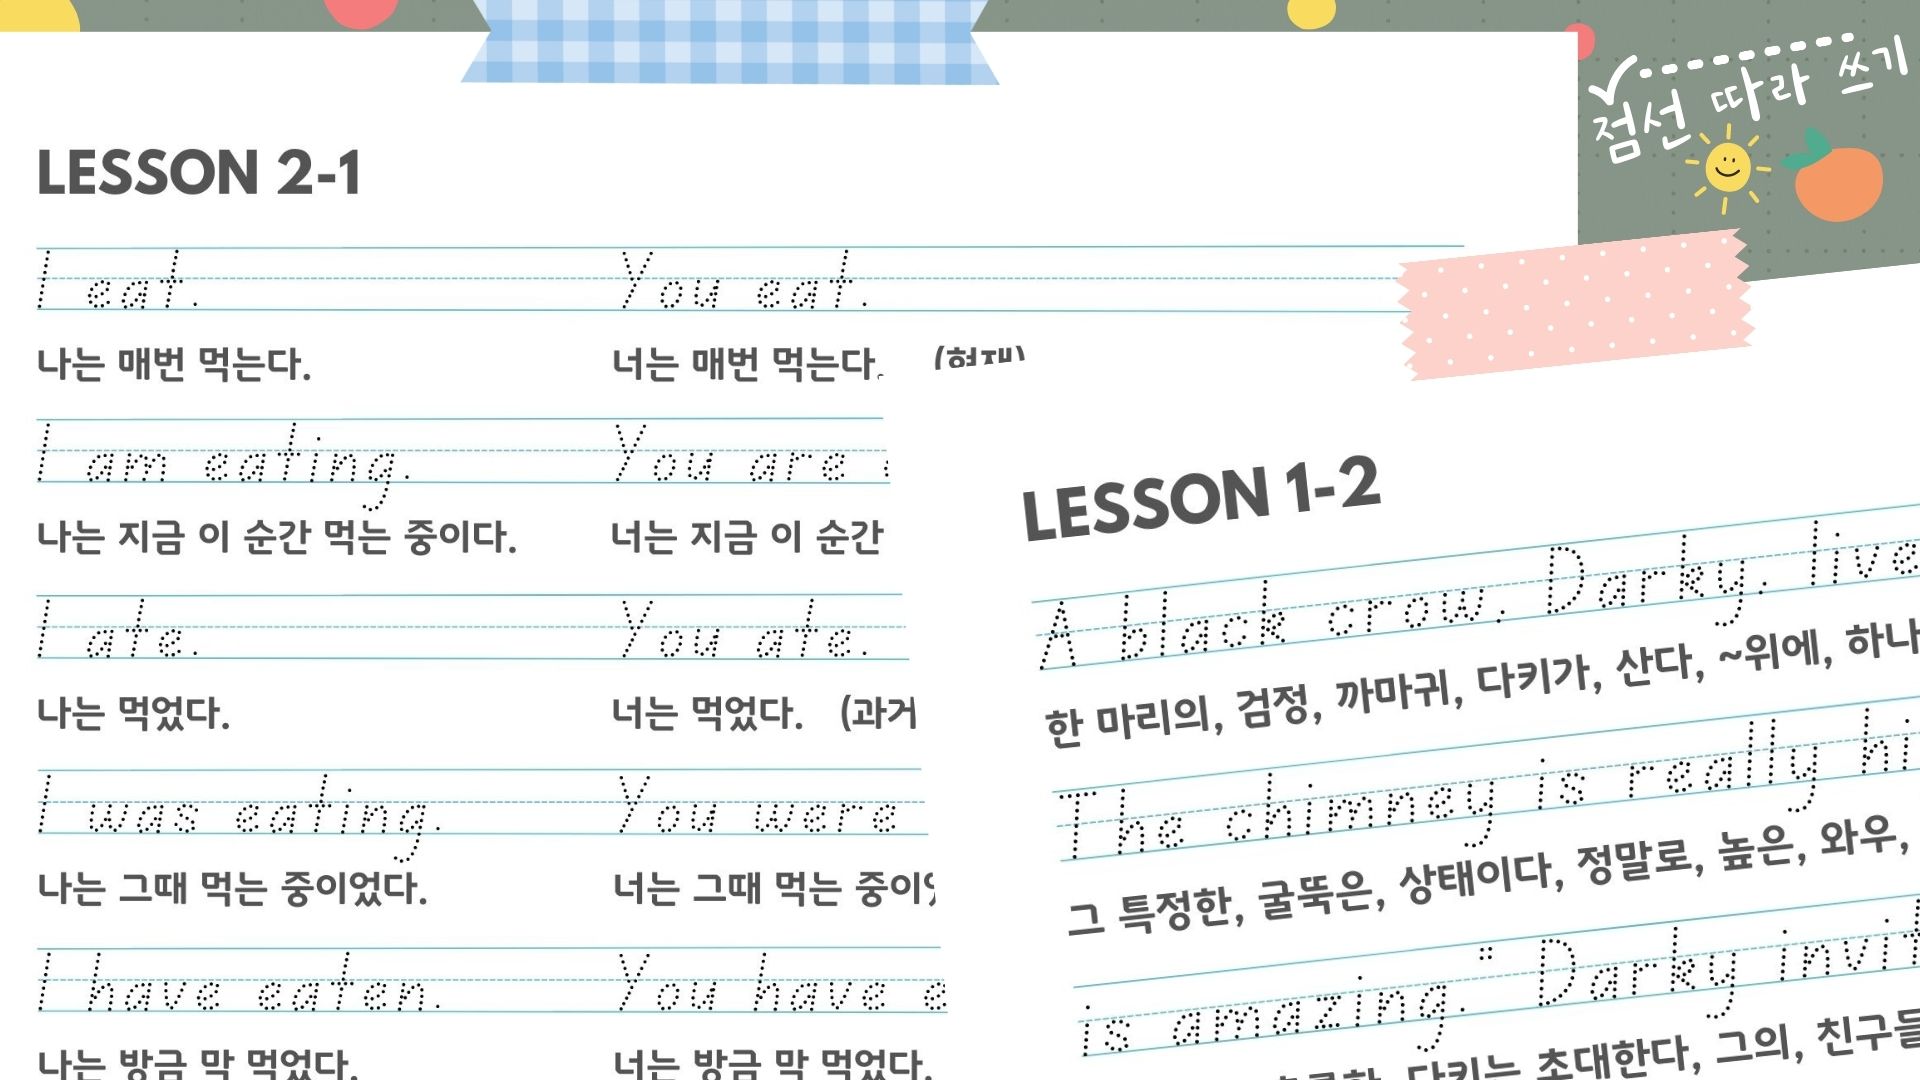 점선 따라 쓰기
LESSON 2-1
I eat. You eat.
나는 매번 먹는다. 너는 매번 먹는다. (현재)
I am eating. You are
나는 지금 이 순간 먹는 중이다. 너는 지금 이 순간
I ate. You ate.
나는 먹었다. 너는 먹었다. (과거
I was eating. You were
나는 그때 먹는 중이었다. 너는 그때 먹는
I have eaten. You have
나는 방금 막 먹었다. 너는 방금 막 먹었다.
LESSON 1-2
A black crow, Darky, live
한 마리의, 검정, 까마귀, 다키가, 산다, ~위에, 하나
The chimney is really hi
그 특정한, 굴뚝은, 상태이다, 정말로, 높은, 와우,
is amazing." Darky invit
다키는 초대한다, 그의, 친구들